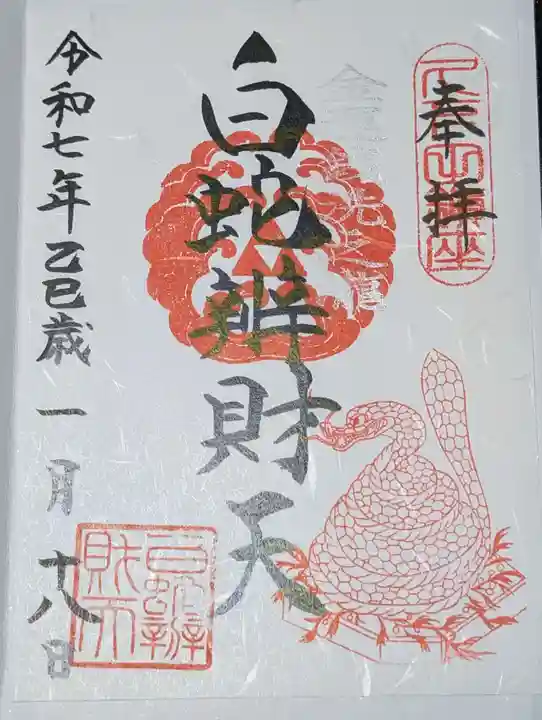 奉拝
白蛇辨財天
令和七年乙巳歳一月十八日
白蛇辨
財天